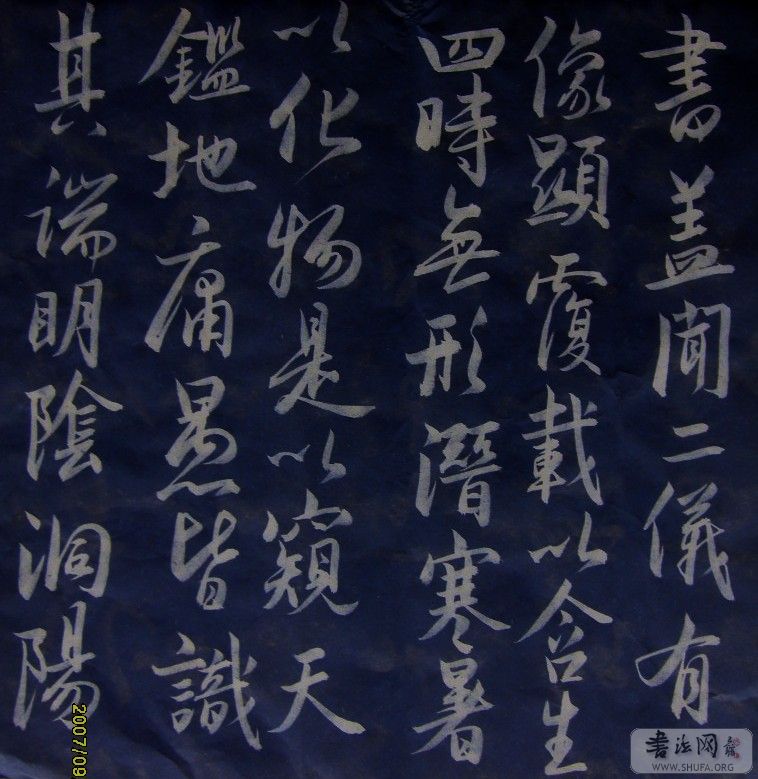 書盖聞二儀有
像顯覆載以含生
四時無形潛寒暑
以化物是以窺天
鑑地庸愚皆識
其端明陰洞陽
2007/09
書法网
WWW.SHUFA.ORG